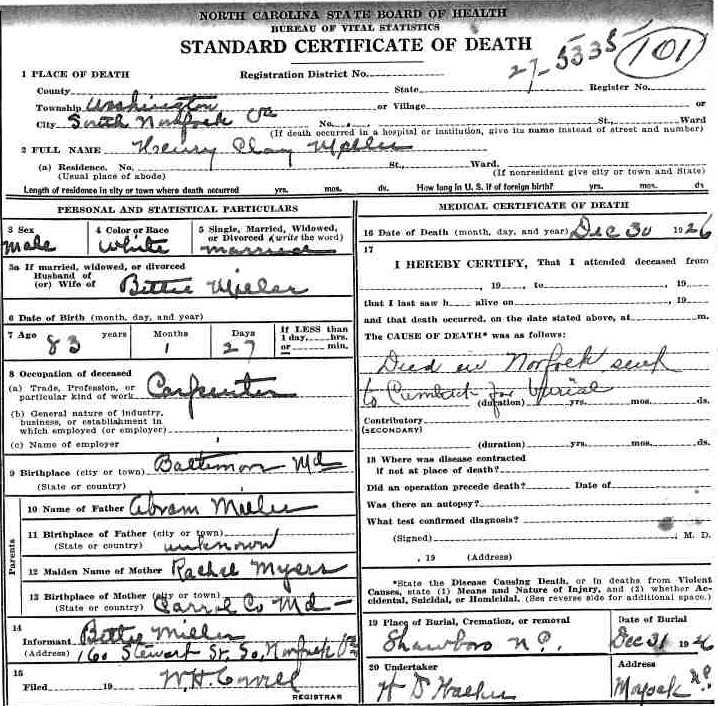 NORTH CAROLINA STATE BOARD OF HEALTH
BUREAU OF VITAL STATISTICS
STANDARD CERTIFICATE OF DEATH
27-5335 101
1 PLACE OF DEATH Registration District No.
County State Register No.
Township Washington or Village or
City South Norfolk Va No. St., Ward
(If death occurred in a hospital or institution, give its name instead of street and number)
2 FULL NAME Henry Clay Miller
(a) Residence. No. St., Ward.
(Usual place of abode) (If nonresident give city or town and State)
Length of residence in city or town where death occurred yrs. mos. ds. How long in U. S. if of foreign birth? yrs. mos. ds
PERSONAL AND STATISTICAL PARTICULARS
3 Sex 4 Color or Race 5 Single, Married, Widowed,
or Divorced (write the word)
Male White Married
5a If married, widowed, or divorced
Husband of
(or) Wife of Bettie Miller
6 Date of Birth (month, day, and year)
7 Age 83 years Months 1 Days 27 If LESS than
1 day, hrs.
or min.
8 Occupation of deceased
(a) Trade, Profession, or
particular kind of work Carpenter
(b) General nature of industry,
business, or establishment in
which employed (or employer)
(c) Name of employer
9 Birthplace (city or town) Baltimore Md
(State or country)
Parents
10 Name of Father Abram Miller
11 Birthplace of Father (city or town)
(State or country) unknown
12 Maiden Name of Mother Rachel Myers
13 Birthplace of Mother (city or town)
(State or country) Carrol Co Md
14
Informant Bettie Miller
(Address) 160 Stewart St. So. Norfolk Va
15
Filed 19
REGISTRAR
MEDICAL CERTIFICATE OF DEATH
16 Date of Death (month, day, and year) Dec 30 1926
17
I HEREBY CERTIFY, That I attended deceased from
, 19 , to , 19
that I last saw h alive on , 19
and that death occurred, on the date stated above, at m.
The CAUSE OF DEATH* was as follows:
Died in Norfolk
to for burial
(duration) yrs. mos. ds.
Contributory
(SECONDARY)
(duration) yrs. mos. ds.
18 Where was disease contracted
if not at place of death?
Did an operation precede death? Date of
Was there an autopsy?
What test confirmed diagnosis?
(Signed) , M. D.
, 19 (Address)
*State the Disease Causing Death, or in deaths from Violent
Causes, state (1) Means and Nature of Injury, and (2) whether Ac-
cidental, Suicidal, or Homicidal. (See reverse side for additional space.)
19 Place of Burial, Cremation, or removal Date of Burial
Shawboro N.C. Dec 31 1926
20 Undertaker Address
Moyock N.C.